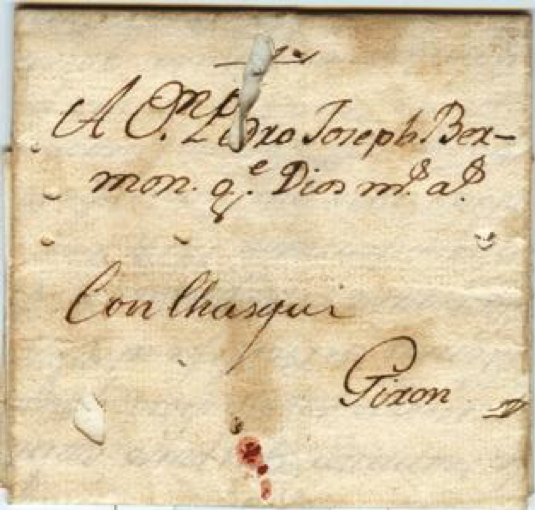 A D.n Pedro Joseph Ber-
mon. q.e Dios m.s a.s
Con Chasqui
Giron